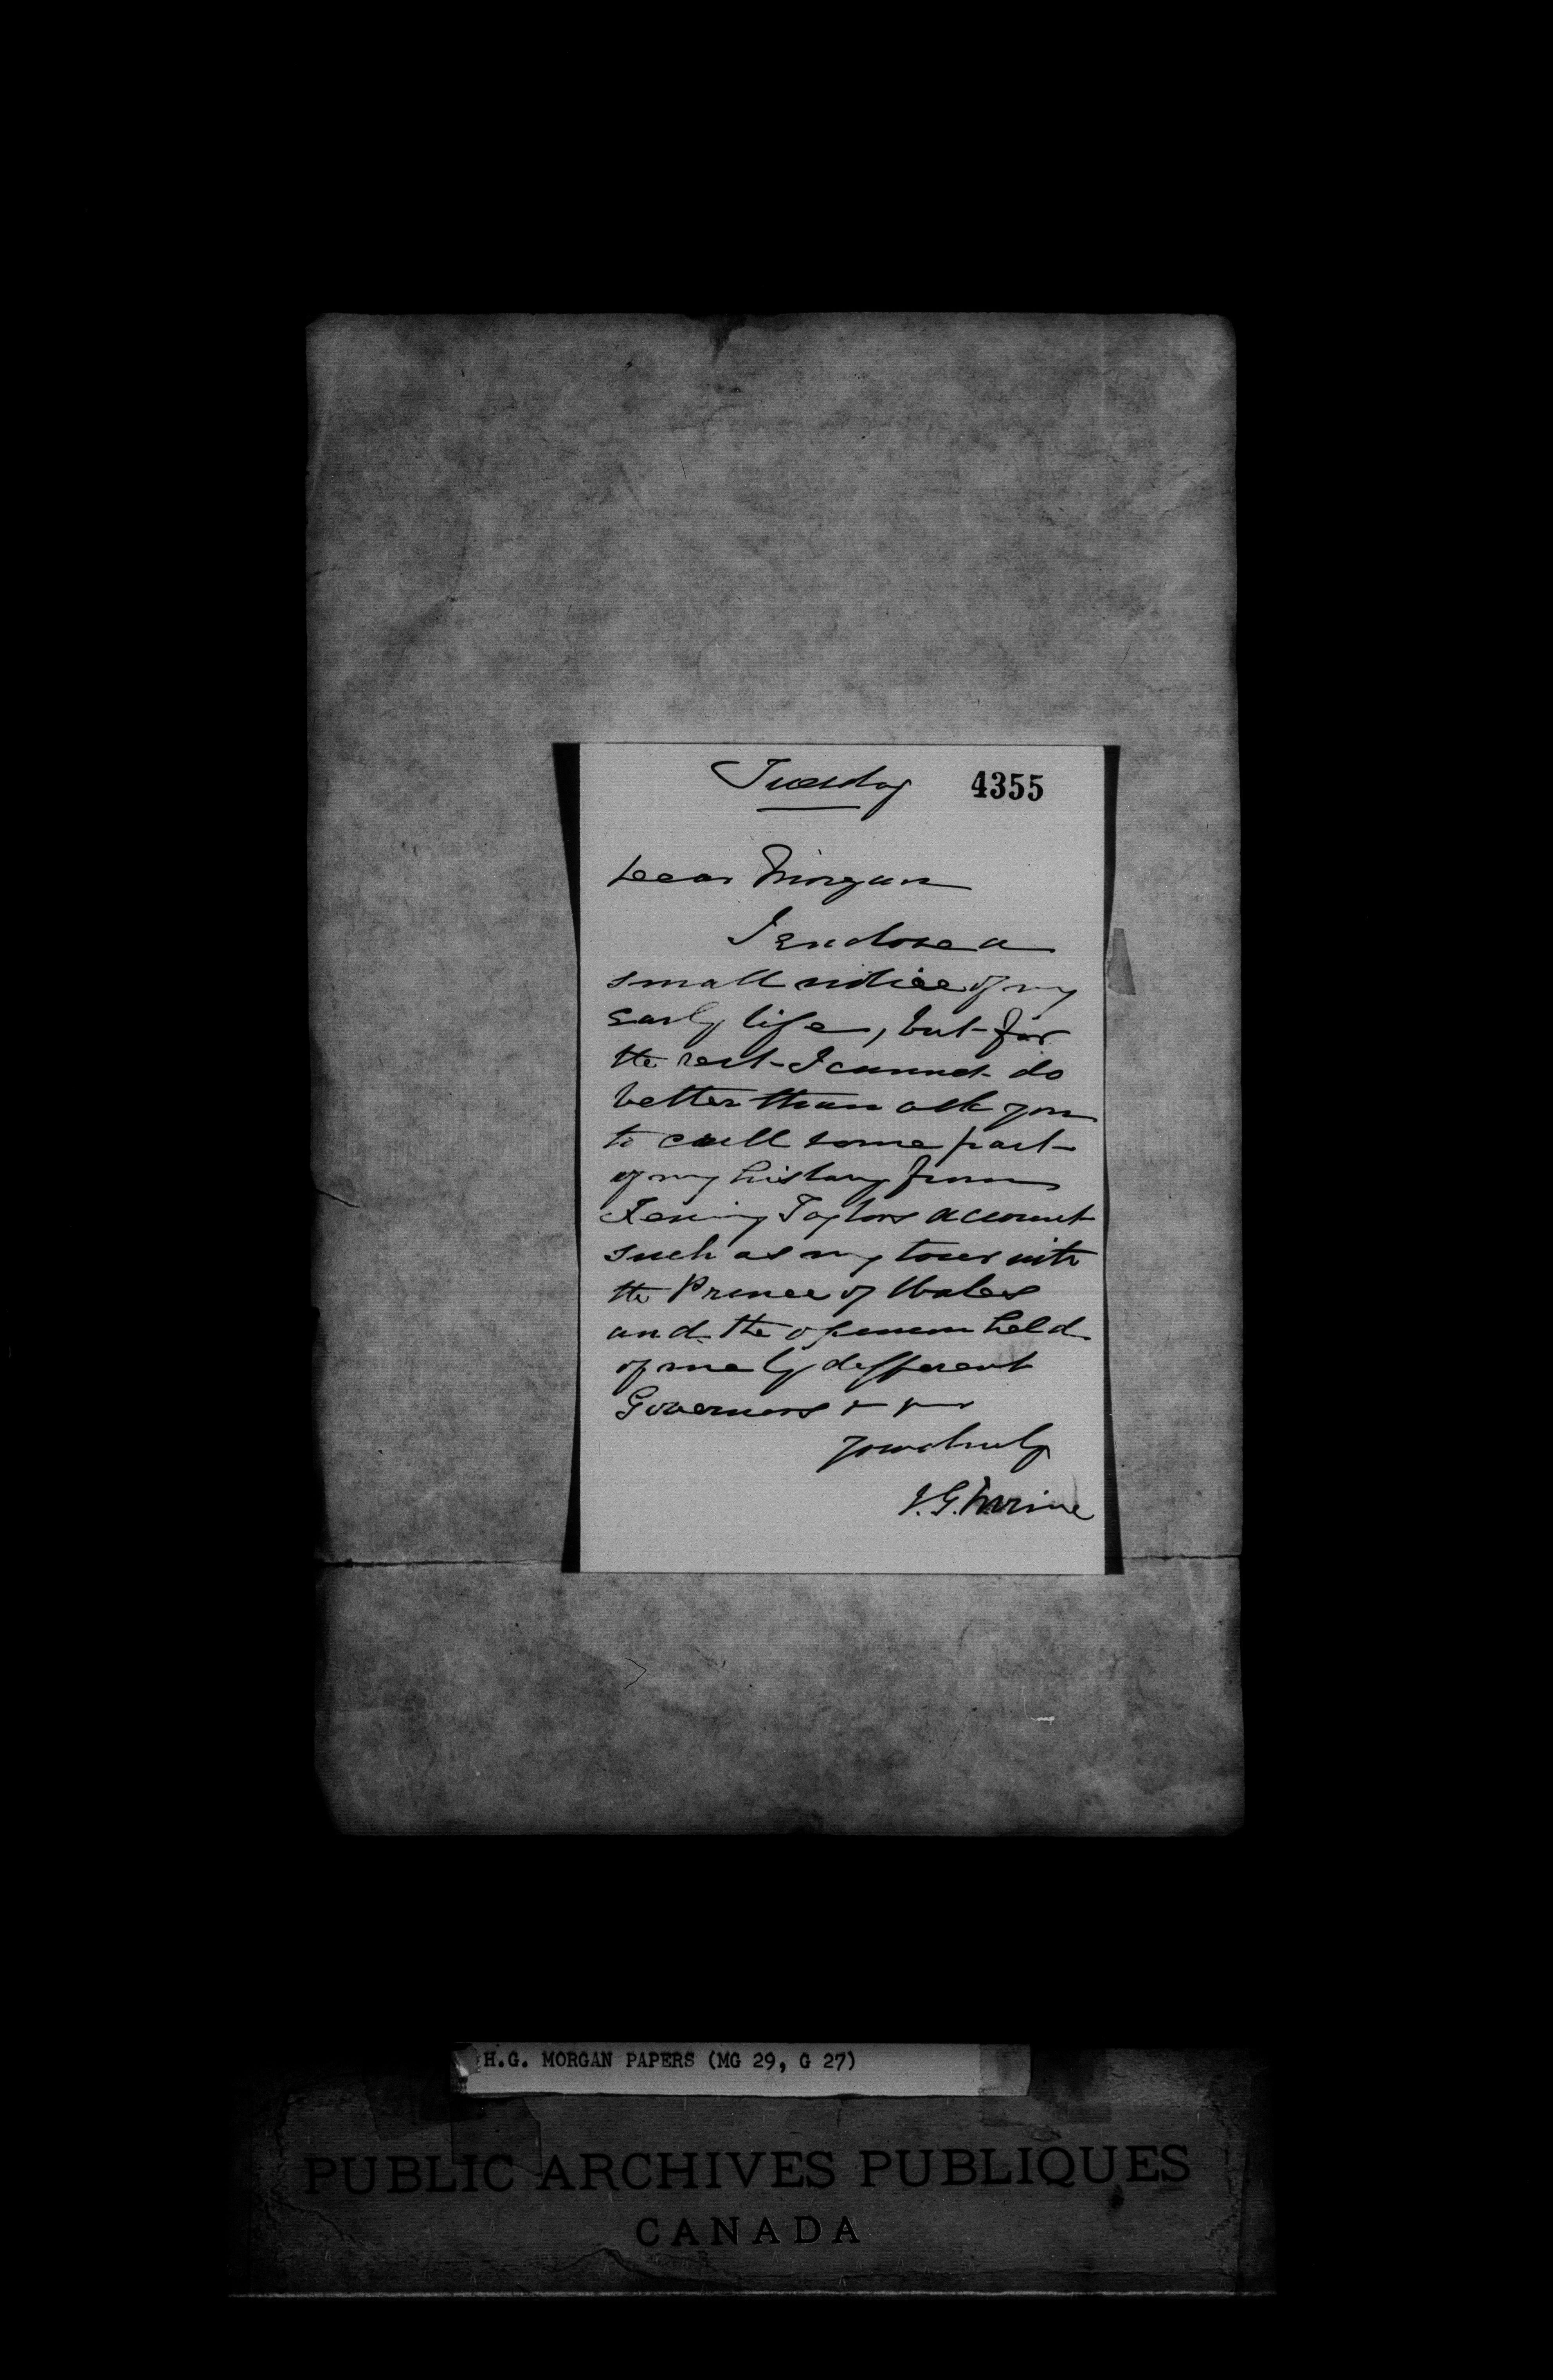 Tuesday 4355
Dear Morgan
I enclose a
small notice of my
early life, but for
the rest I cannot do
better than ask you
to cull some part
of my history from
Fening Taylors account
such as my tour with
the Prince of Wales
and the opinion held
of me by different
Governors &
yours truly
J.G. Irvine
H.G. MORGAN PAPERS (MG 29, G 27)
PUBLIC ARCHIVES PUBLIQUES
CANADA